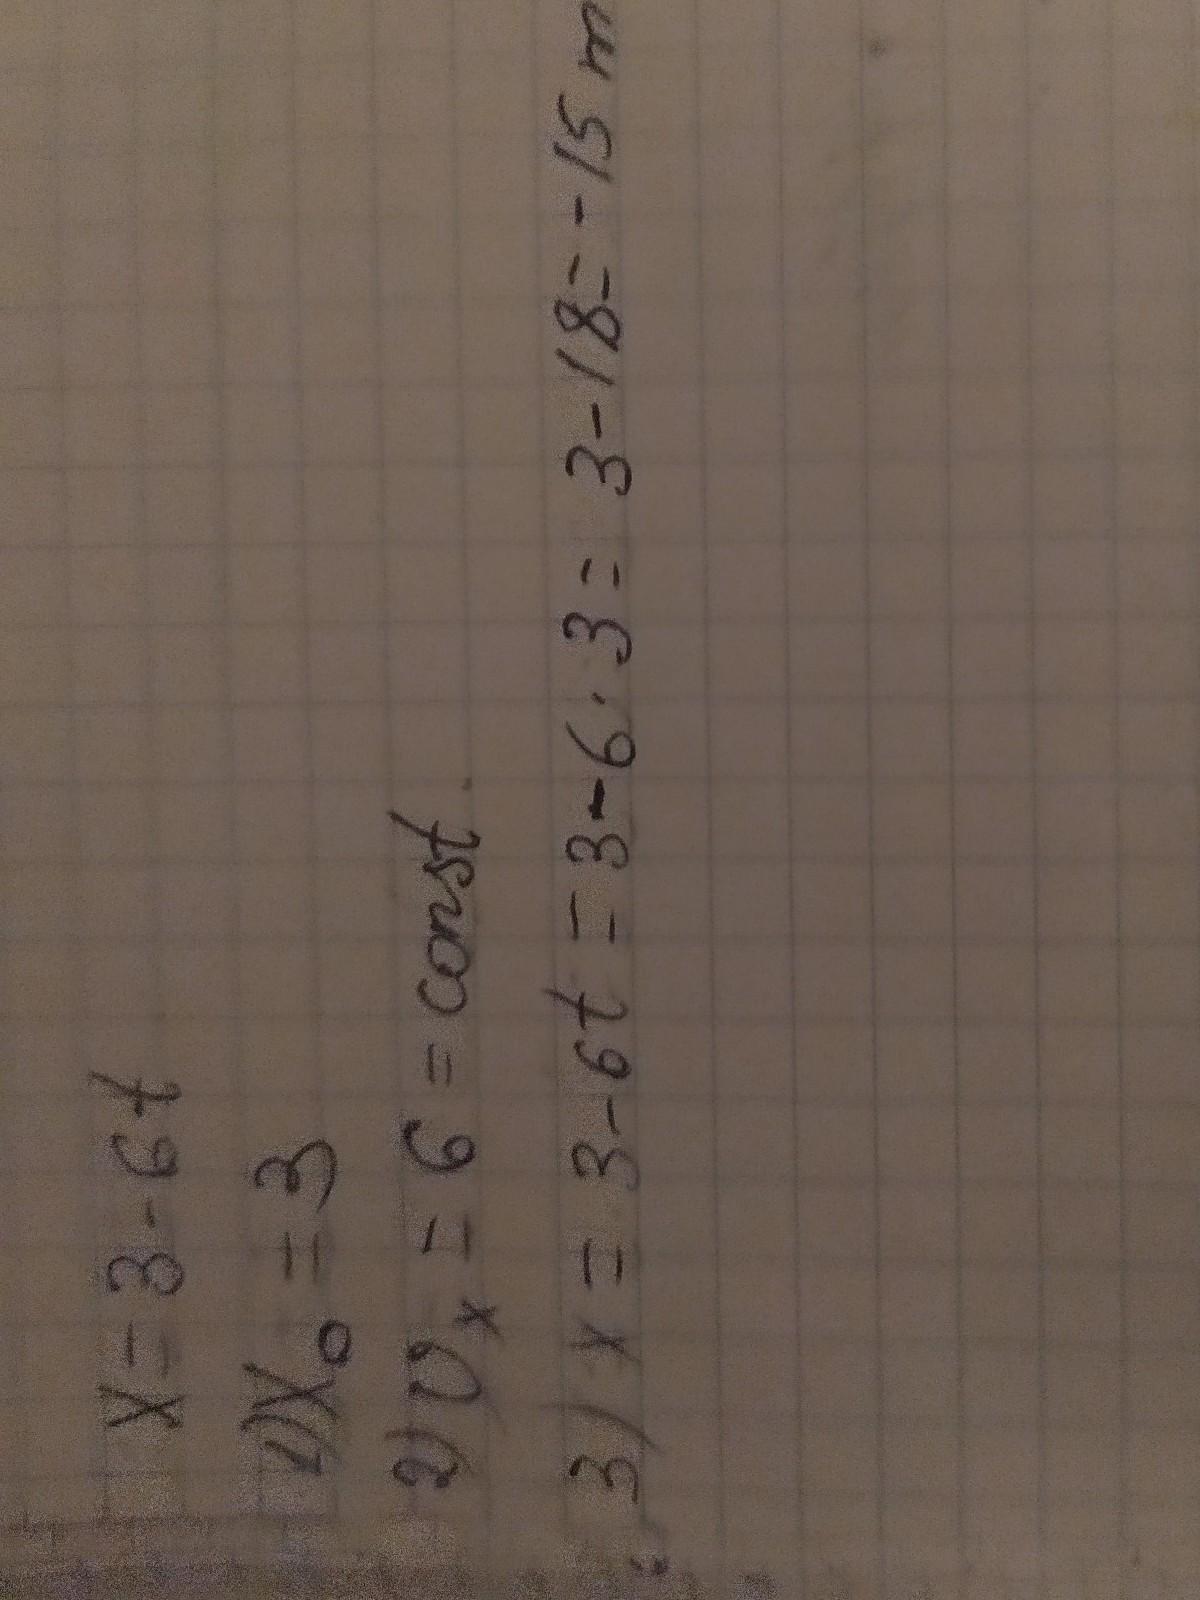 x = 3 - 6t
1) x₀ = 3
2) υₓ = 6 = const.
3) x = 3 - 6t = 3 - 6 · 3 = 3 - 18 = - 15 m